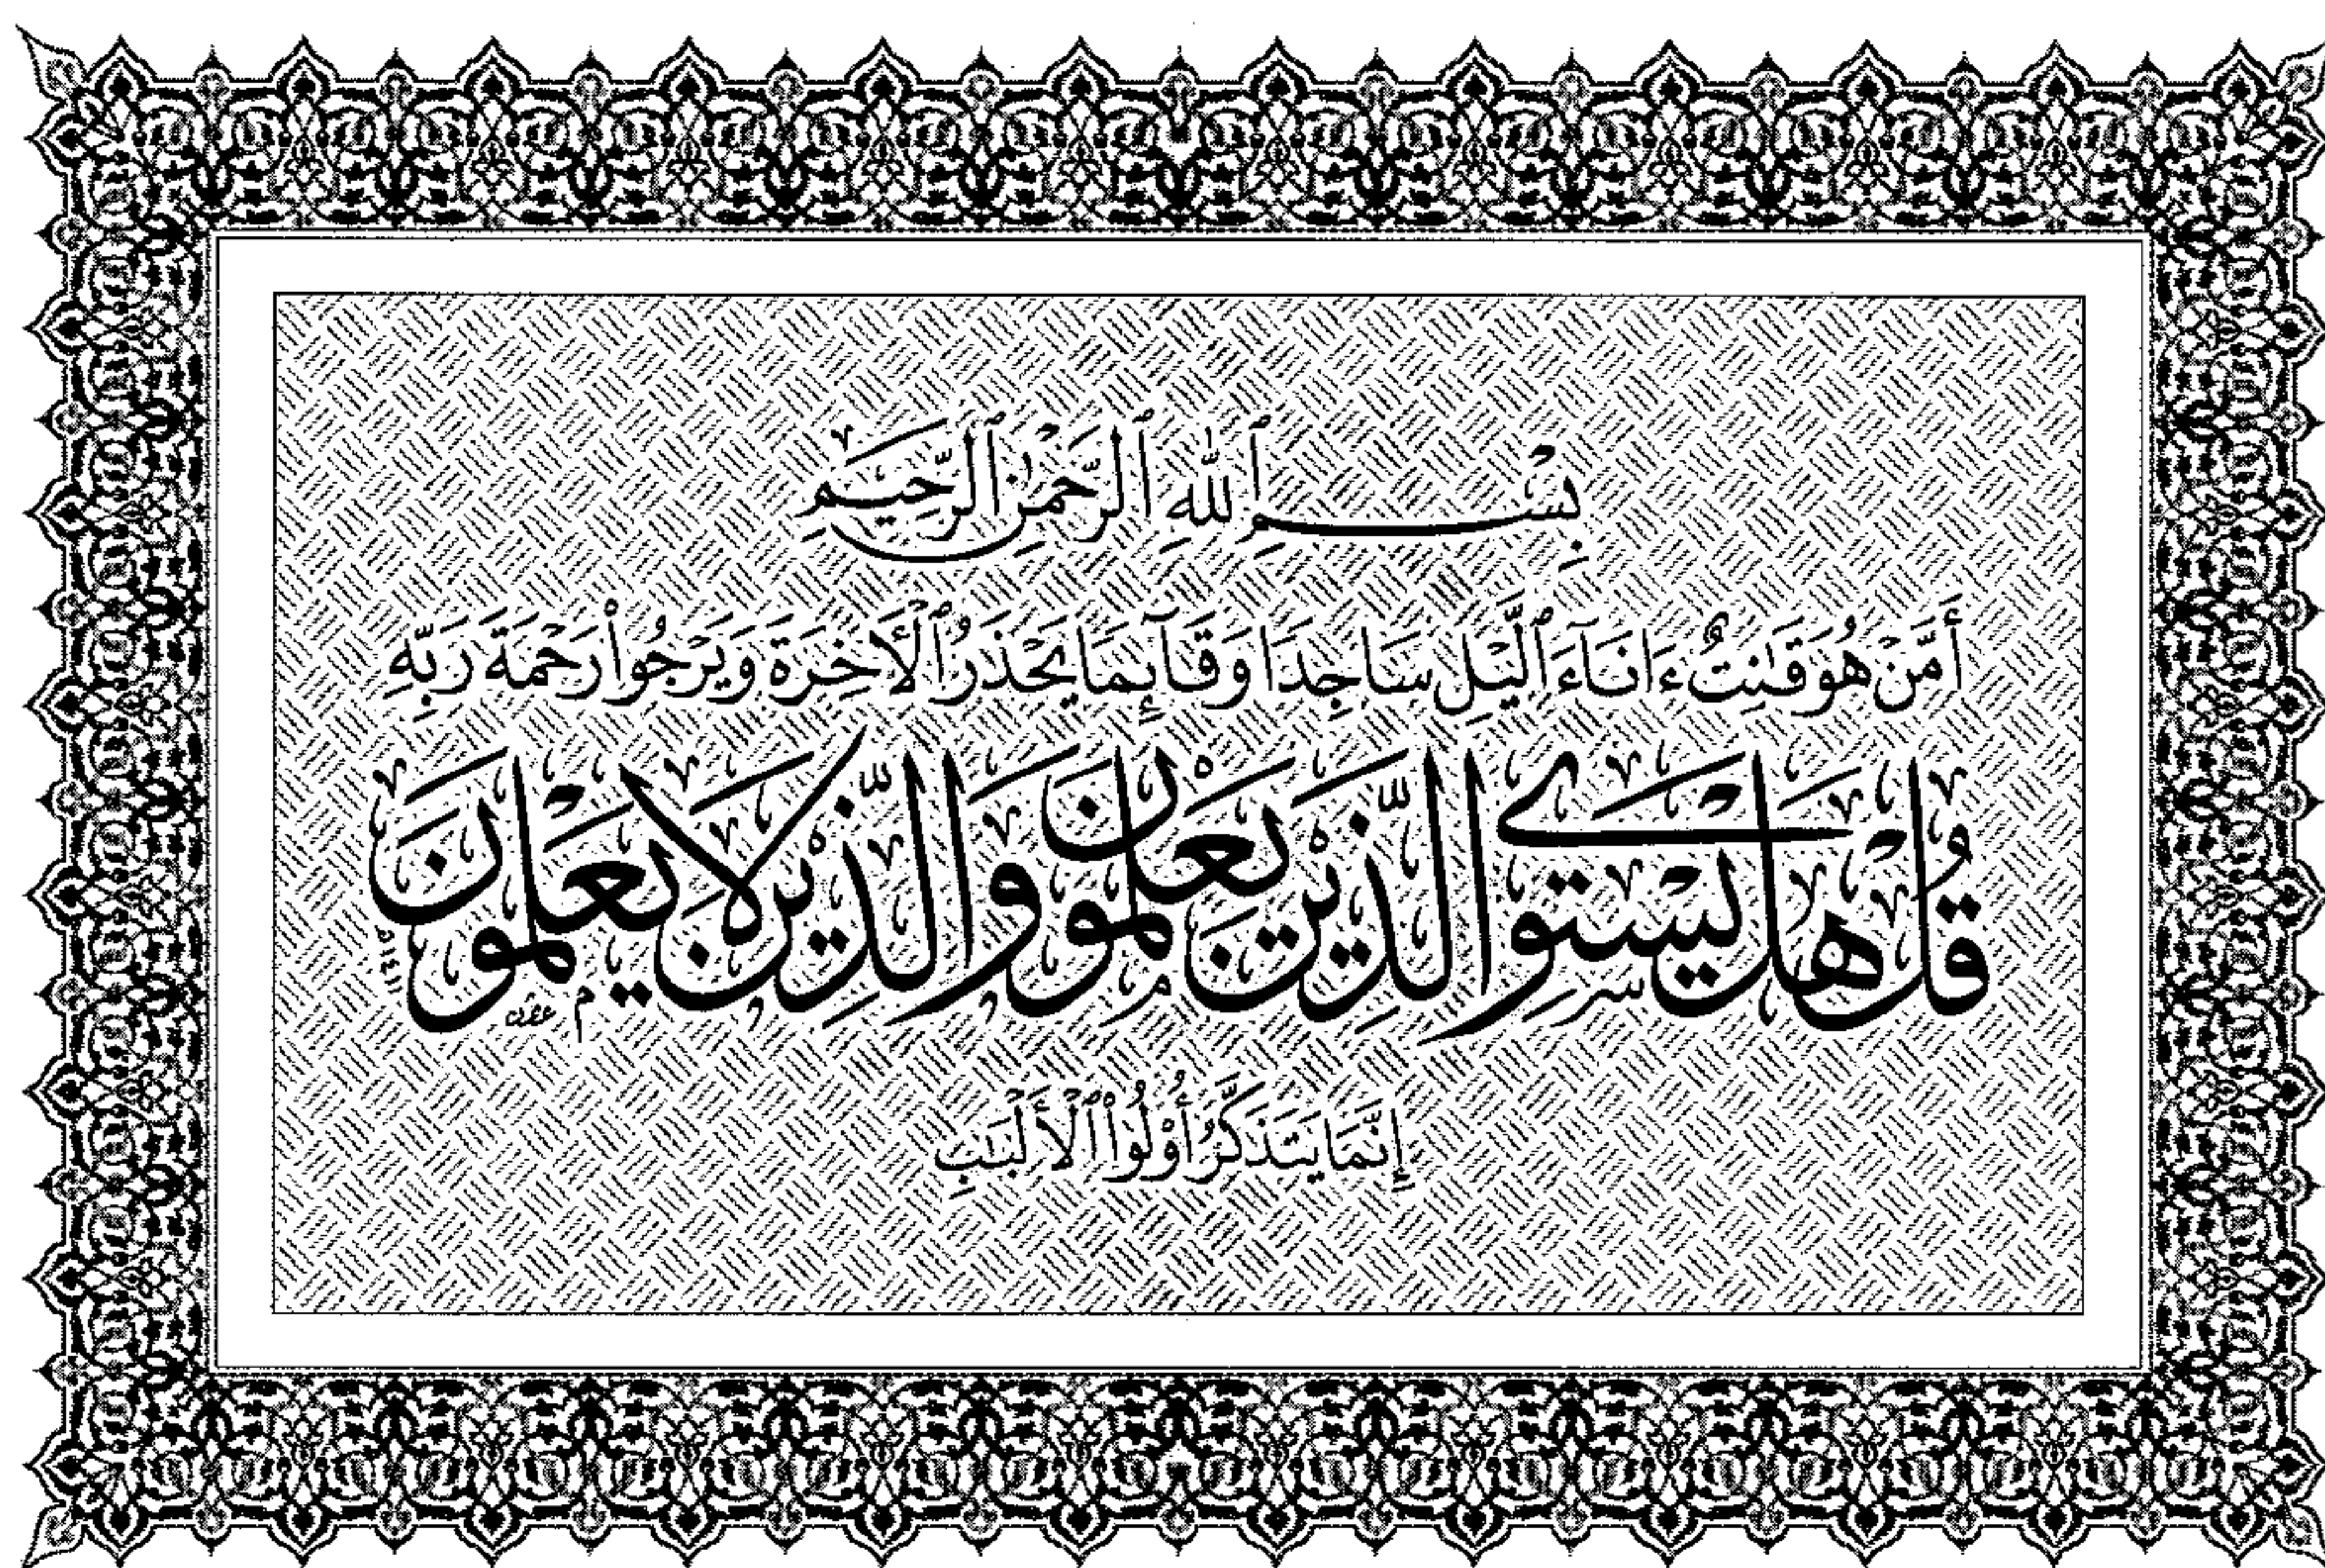 بِسْمِ ٱللَّهِ ٱلرَّحْمَٰنِ ٱلرَّحِيمِ
أَمَّنْ هُوَ قَٰنِتٌ ءَانَآءَ ٱلَّيْلِ سَاجِدًا وَقَآئِمًا يَحْذَرُ ٱلْأَخِرَةَ وَيَرْجُوا۟ رَحْمَةَ رَبِّهِ
قُلْ هَلْ يَسْتَوِى الَّذِينَ يَعْلَمُونَ وَالَّذِينَ لَا يَعْلَمُونَ
١٤١١هـ
إِنَّمَا يَتَذَكَّرُ أُو۟لُوا۟ ٱلْأَلْبَٰبِ